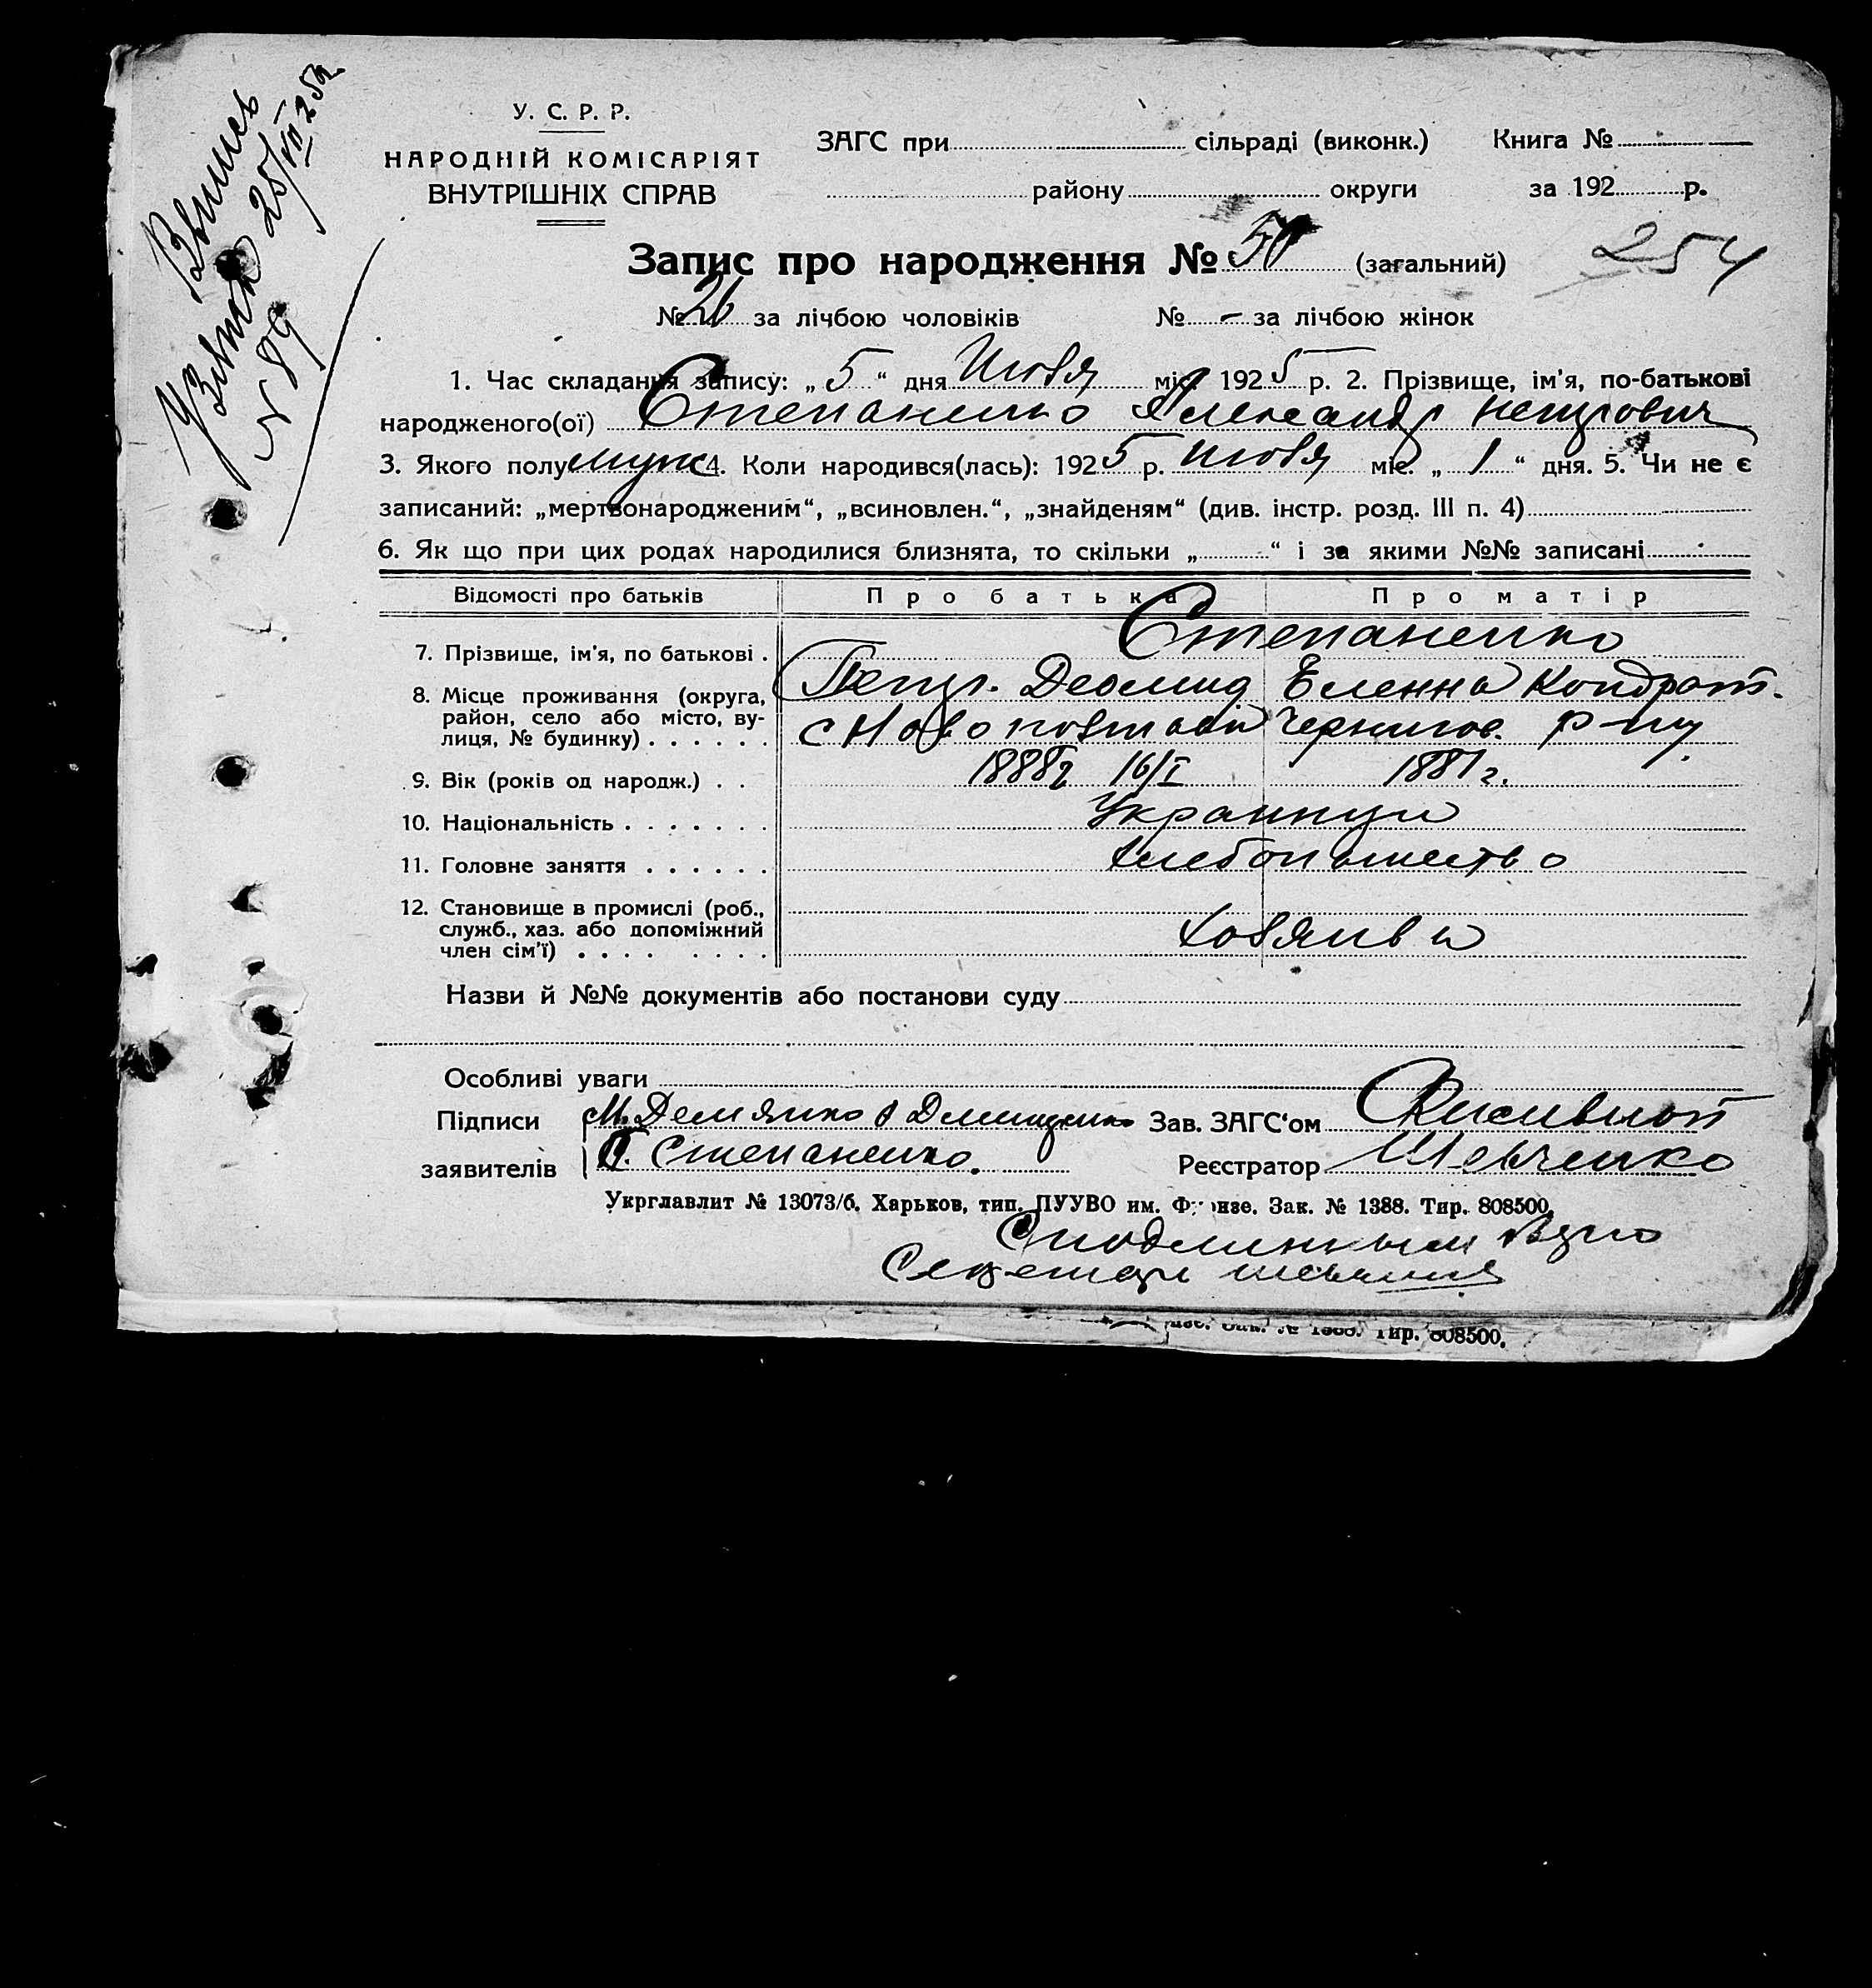 Выпись
25/VII 25 г.
№ 89
У. С. Р. Р.
НАРОДНІЙ КОМІСАРІЯТ
ВНУТРІШНІХ СПРАВ
ЗАГС при сільраді (виконк.) Книга №
району округи за 192 р.
Запис про народження № 50 (загальний) 254
№ 26 за лічбою чоловіків № - за лічбою жінок
1. Час складання запису: „ 5 “ дня Июля міс. 1925 р. 2. Прізвище, ім'я, по-батькові
народженого(ої) Степаненко Александр Петрович
3. Якого полу муж 4. Коли народився(лась): 1925 р. Июля міс. „ 1 “ дня. 5. Чи не є
записаний: „мертвонародженим“, „всиновлен.“, „знайденям“ (див. інстр. розд. III п. 4)
6. Як що при цих родах народилися близнята, то скільки „ “ і за якими №№ записані
Відомості про батьків Про батька Про матір
7. Прізвище, ім'я, по батькові . Степаненко
8. Місце проживання (округа, Петр. Деомид Еленна Кондрат.
район, село або місто, ву-
лиця, № будинку) . . . . . . с Чернигов. р-ну
9. Вік (років од народж.) . . 1888 г 16/I 1881 г.
10. Національність . . . . . . . Украинцы
11. Головне заняття . . . . . . Хлебопашество
12. Становище в промислі (роб.,
служб., хаз. або допоміжний Хозяива
член сім'ї) . . . . . . . .
Назви й №№ документів або постанови суду
Особливі уваги
Підписи М. Демянко Зав. ЗАГС'ом
заявителів П. Степаненко. Реєстратор Шевченко
Укрглавлит № 13073/б. Харьков, тип. ПУУВО им. Фрунзе. Зак. № 1388. Тир. 808500.
С подлинным верно
Секретарь
Зак. № 1388. Тир. 808500.